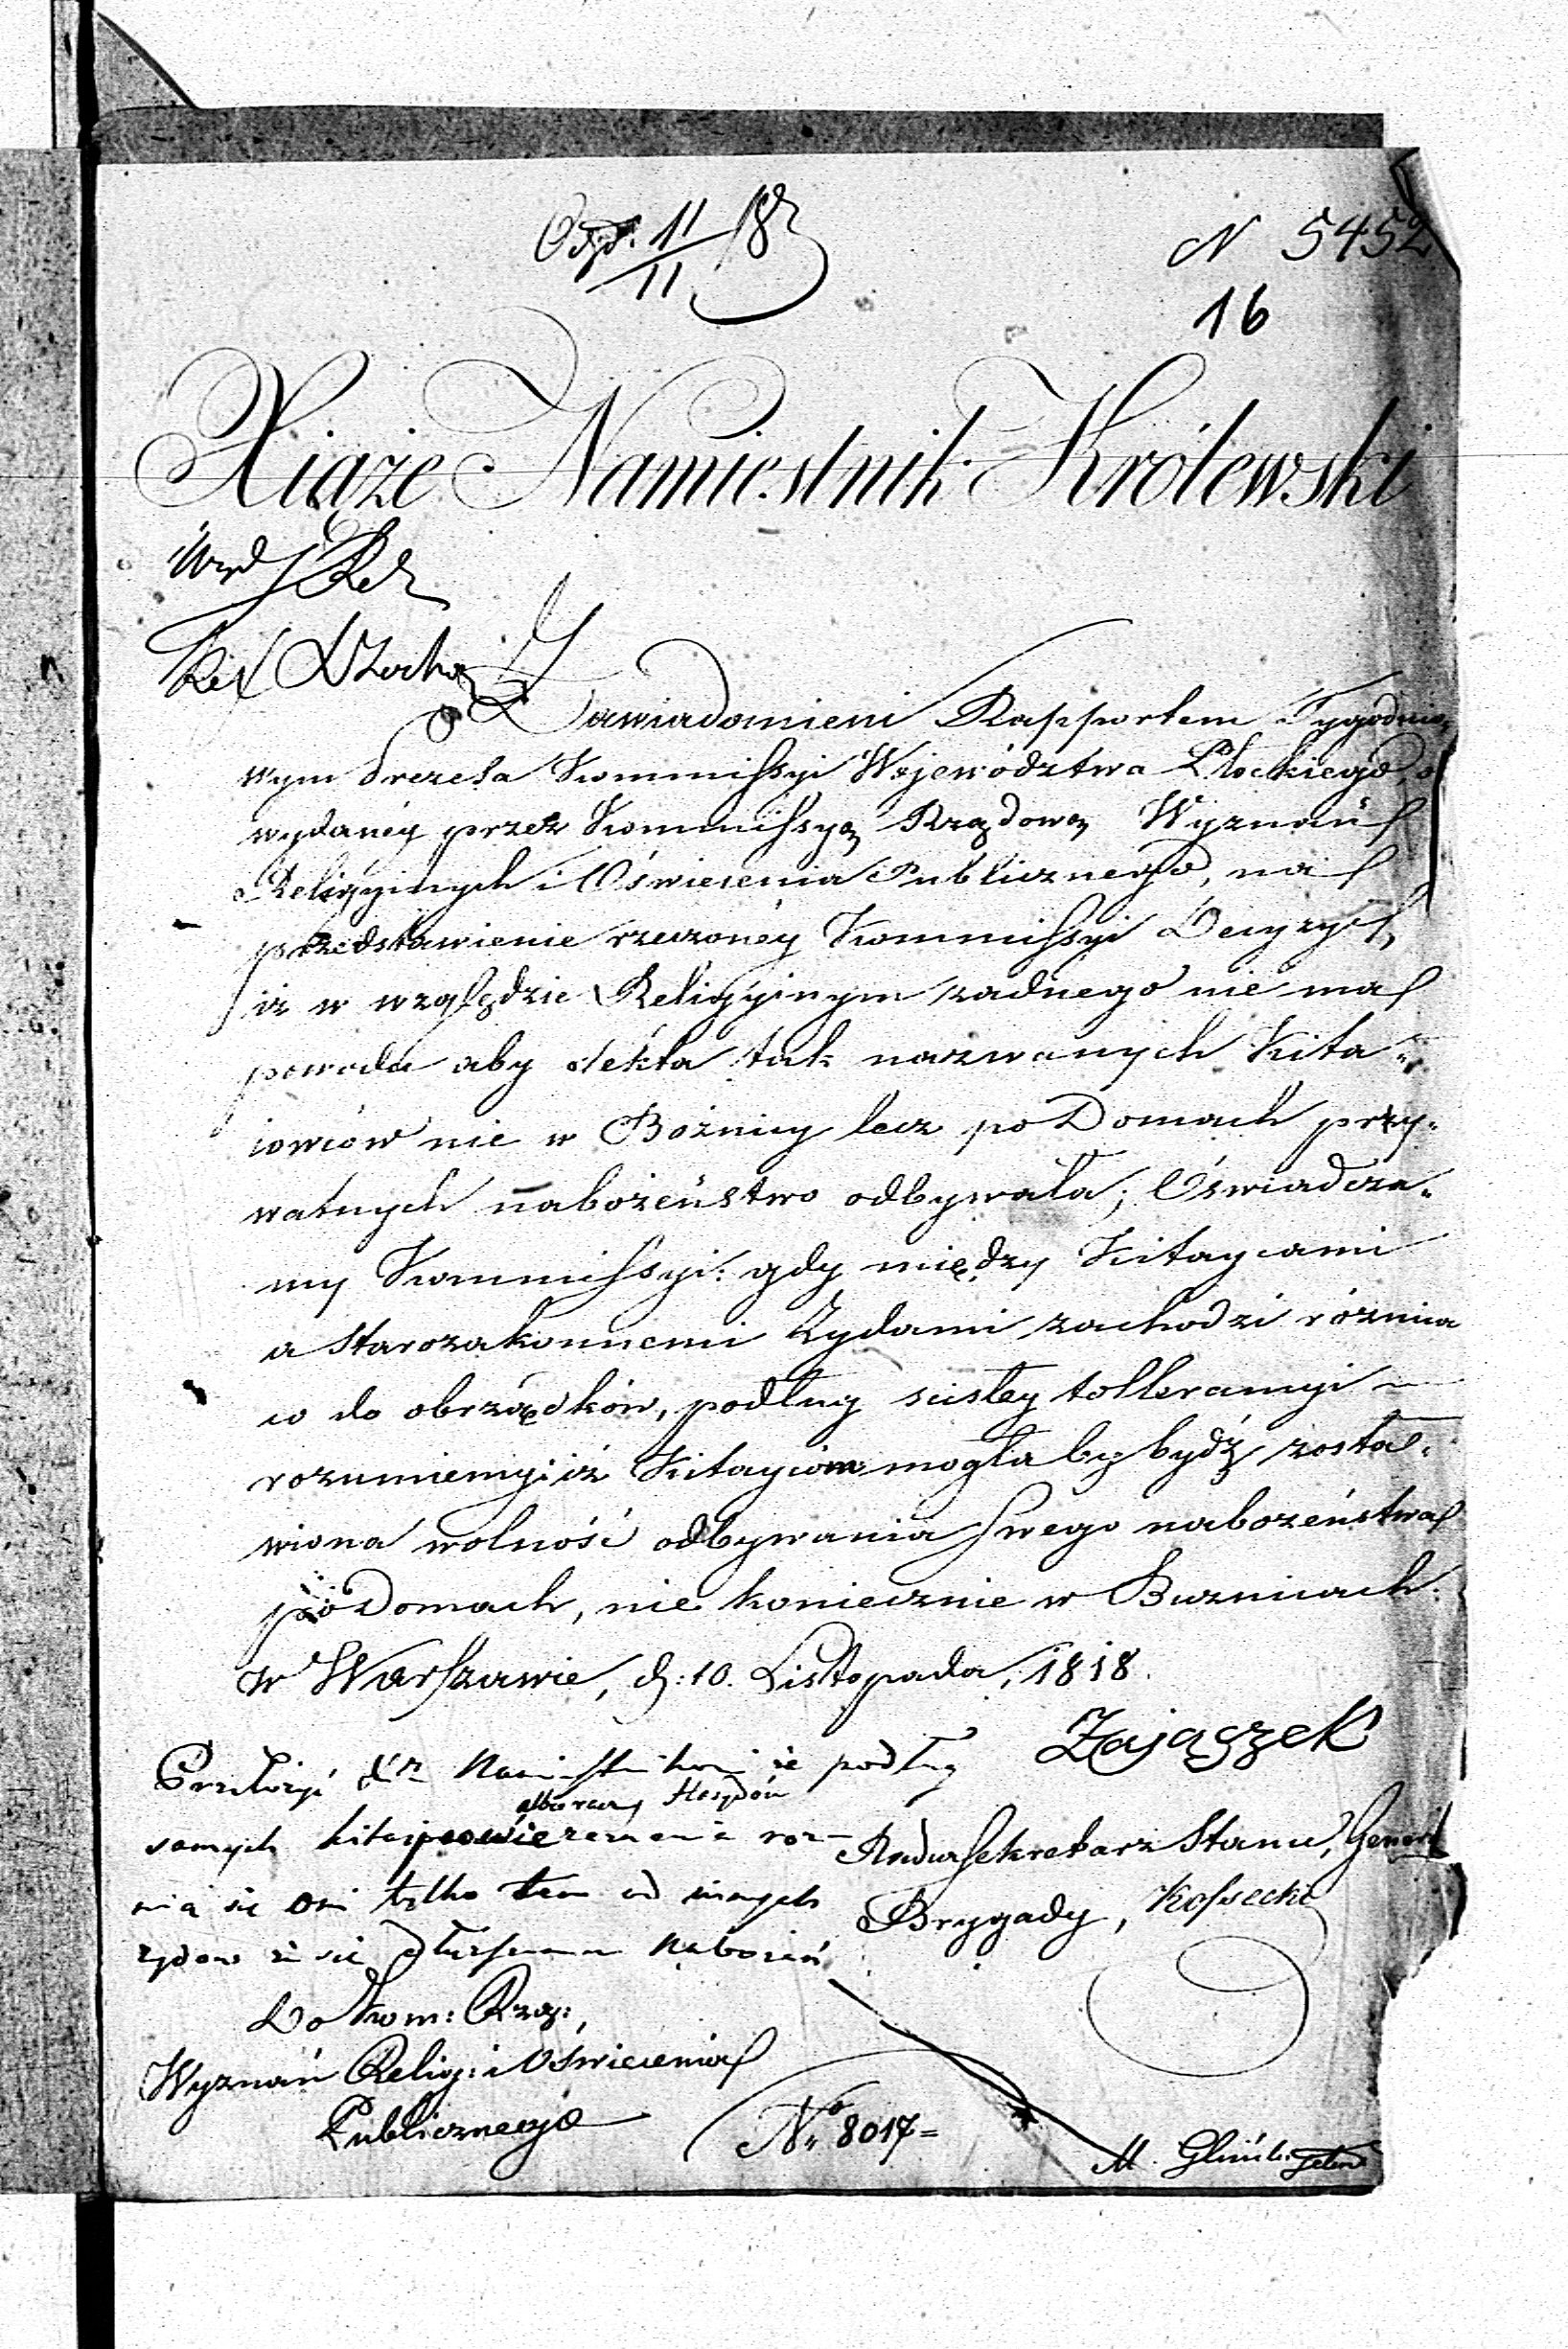 Odp. 11/11 18
N 5452
16
Xiąże Namiestnik Królewski
Zawiadomieni Rapportem Tygodnio,
wym Prezesa Kommissyi Województwa Płockiego, o
wydanéy przez Kommissyą Rządową Wyznań
Religiynych i Oświecenia Publicznego, na
przedstawienie rzeczonéy Kommissyi Decyzyi,
iż w względzie Religiynym żadnego nie ma
powodu aby sekta tak nazwanych Kita=
iowców nie w Bóżnicy lecz po Domach pry=
watnych nabożeństwo odbywała; Oświadcza=
my Kommissyi: gdy między Kitaycami
a Starozakonnemi Żydami zachodzi różnica
co do obrządków, podług scisłey tollerancyi
rozumiemy: iż Kitaycom mogła by bydź zosta=
wiona wolność odbywania swego nabożeństwa
po Domach, nie koniecznie w Buznicach.
w Warszawie, d: 10. Listopada, 1818.
Zajączek
Przełożyć Namiestnikowi że podług
samych Hasydów
nia się oni tylko tem od innych
żydów że się nabożeń
Radca Sekretarz Stanu, Generał
Brygady, Kossecki
Do Kom: Rzą:,
Wyznań Relig: i Oświecenia
Publicznego
No 8017=
M.